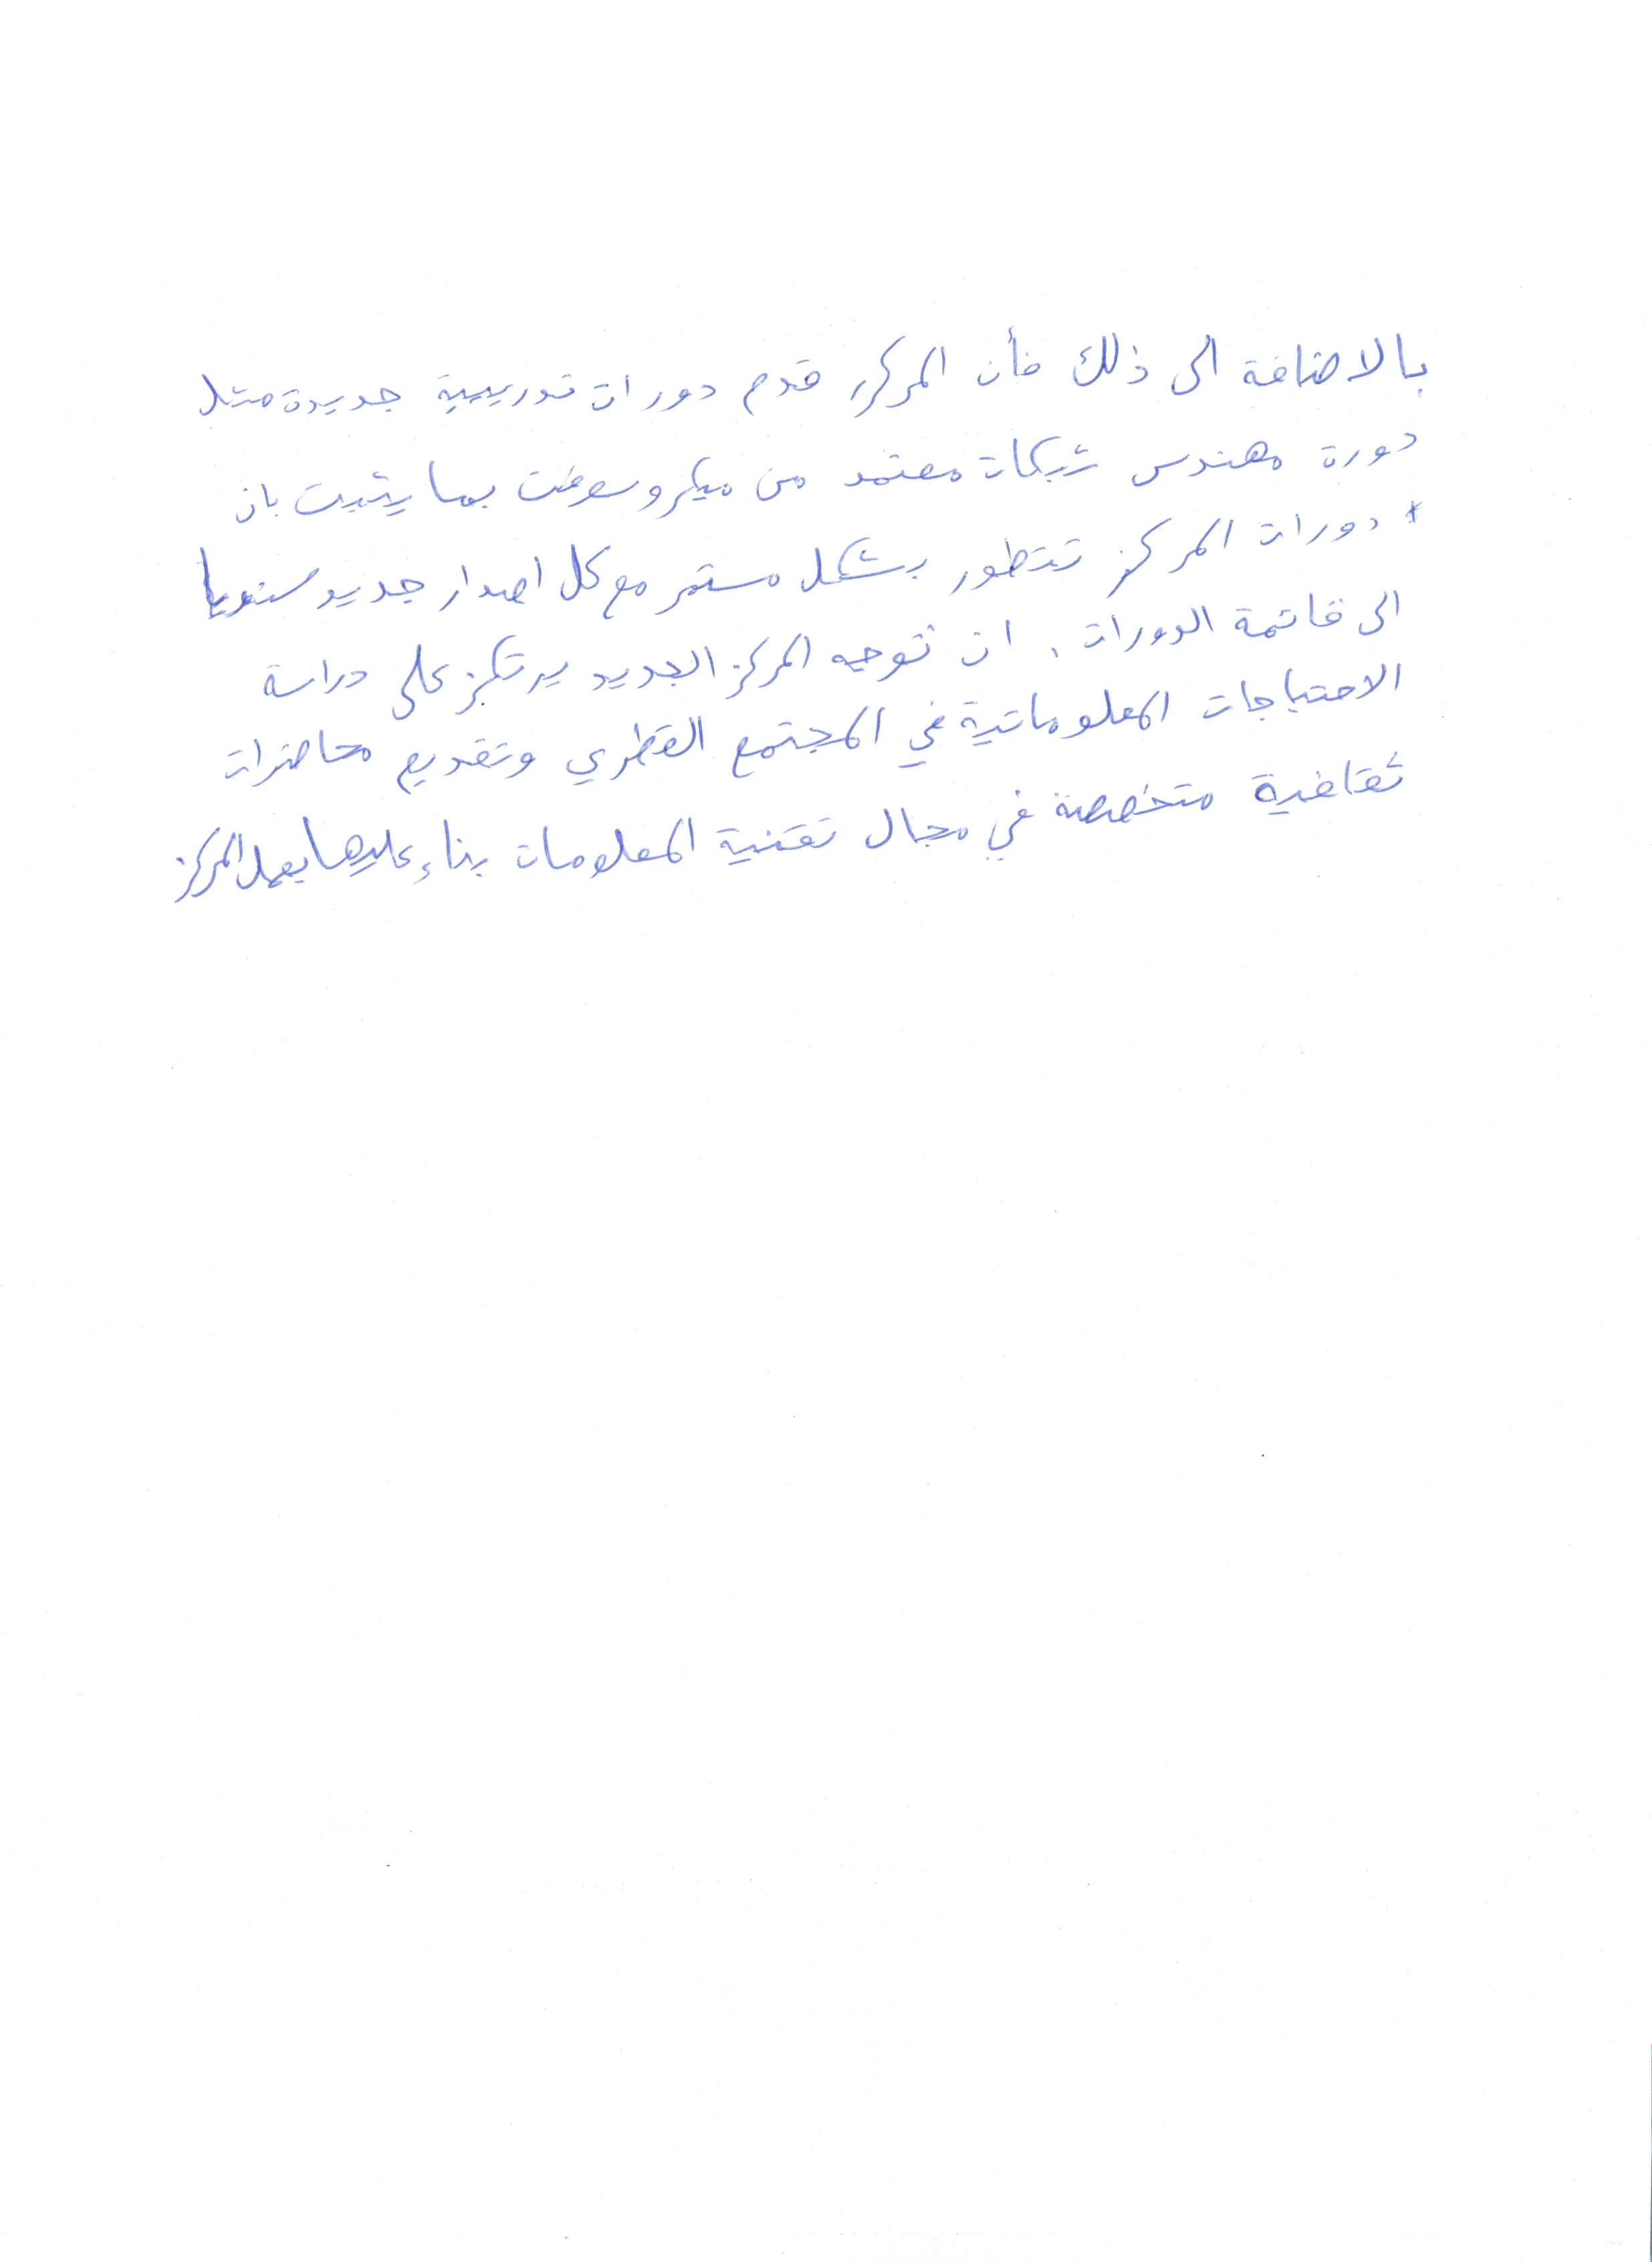 بالاضافة الى ذلك فأن المركز قدم دورات تدريبية جديدة مثل
دورة مهندس شبكات معتمد من ميكروسوفت بما يثبت بان
دورات المركز تتطور بشكل مستمر مع كل اصدار جديد سنويا
الى قائمة الدورات . ان توجيه المركز الجديد يرتكز على دراسة
الاحتياجات المعلوماتية في المجتمع القطري وتقديم محاضرات
ثقافية متخصصة في مجال تقنية المعلومات بناء عليها يعمل المركز